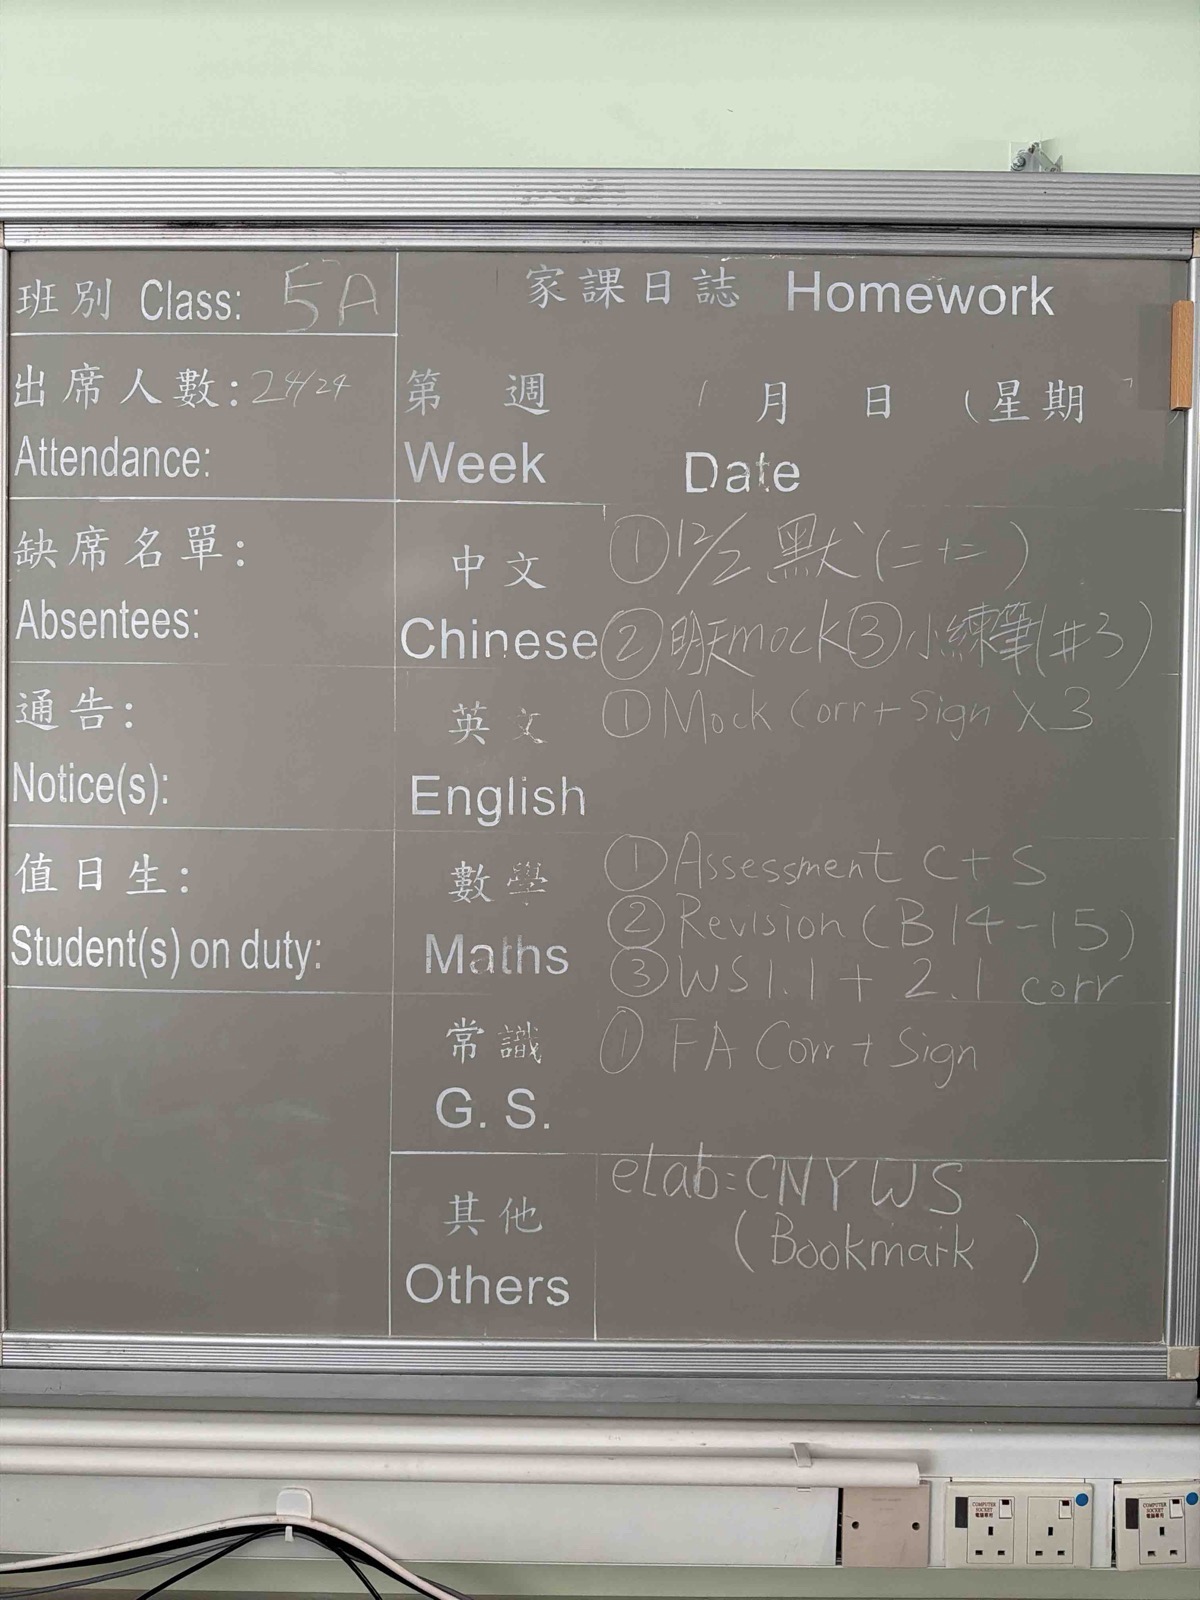 班別 Class: 5A
出席人數: 24/24
Attendance:
缺席名單:
Absentees:
通告:
Notice(s):
值日生:
Student(s) on duty:
家課日誌 Homework
第 週 月 日 (星期
Week Date
中文
Chinese
① 12/2 默(二十二)
② 明天mock ③ 小練筆(#3)
英文
English
① Mock Corr + Sign X 3
數學
Maths
① Assessment C + S
② Revision (B14-15)
③ WS1.1 + 2.1 corr
常識
G. S.
① FA Corr + Sign
其他
Others
eLab: CNY WS
(Bookmark )
COMPUTER
SOCKET
電腦專用
COMPUTER
SOCKET
電腦專用